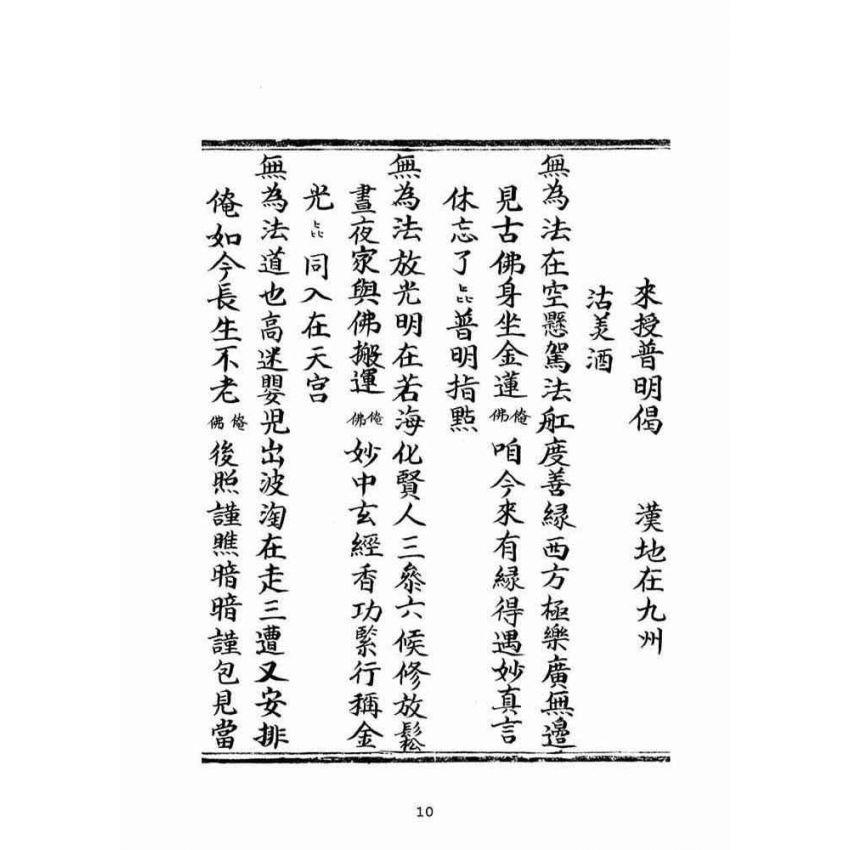 來授普明偈　漢地在九州
沽美酒
無為法在空懸駕法舡度善緑西方極樂廣無邉
見古佛身坐金蓮俺佛咱今來有緑得遇妙真言
休忘了㐂普明指㸃
無為法放光明在若海化賢人三叅六候修放鬆
晝夜家與佛搬運俺佛妙中玄經香功緊行稱金
光㐂同入在天宫
無為法道也高迷嬰児出波淘在走三遭又安排
俺如今長生不老俺佛後照謹瞧暗暗謹包見當
10